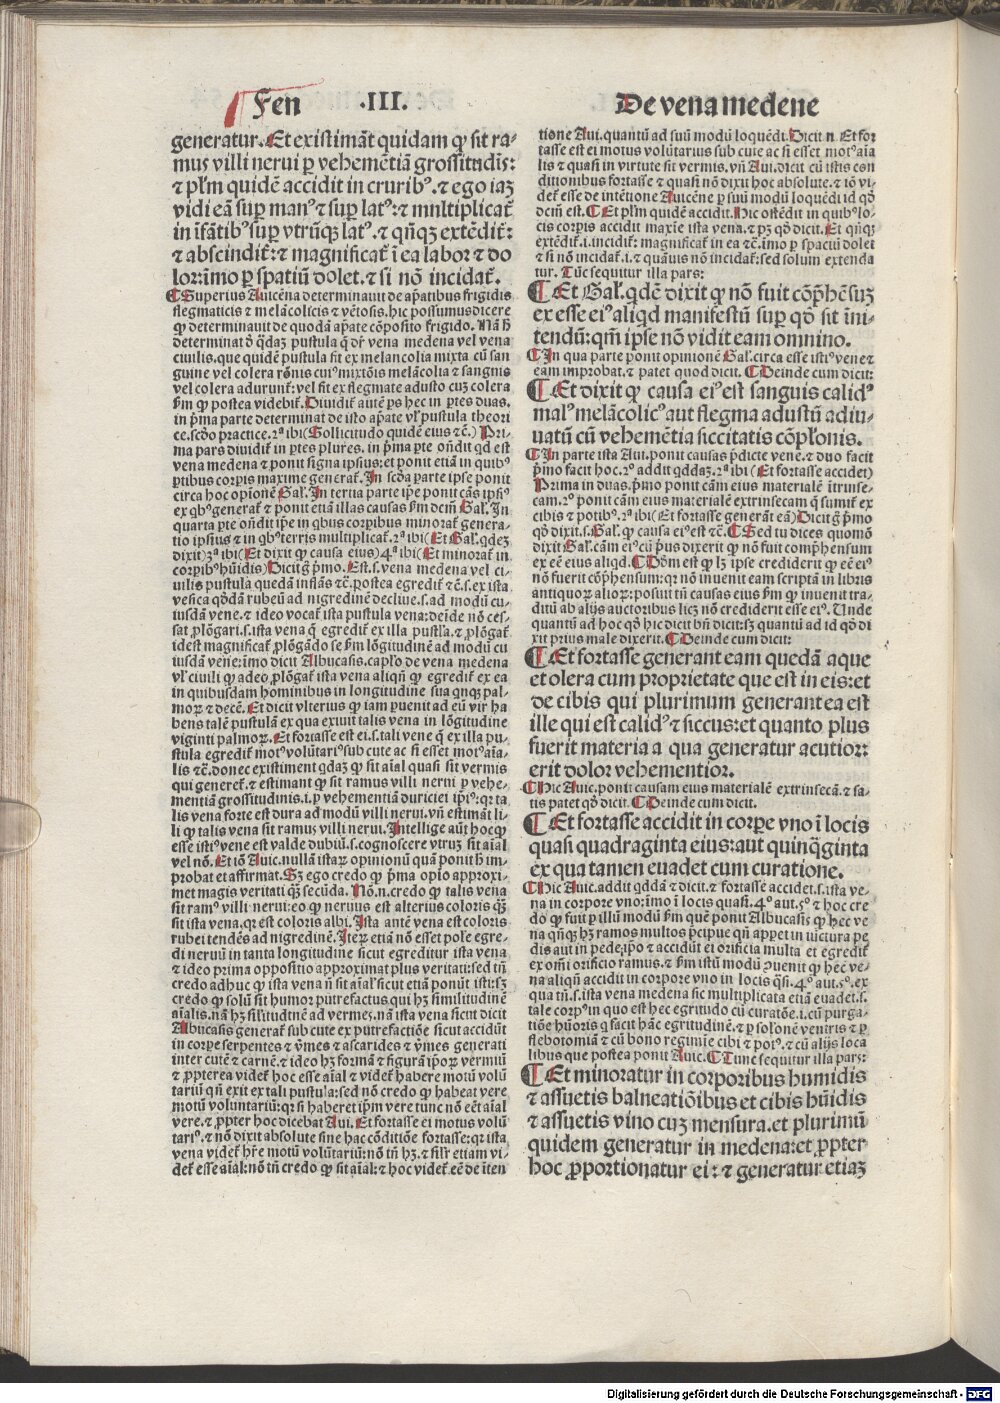 Fen .III. De vena medene
generatur. Et existimāt quidam qꝫ sit ra-
mus villi nerui ꝑ vehemētiā grossitudīs:
⁊ pl'm quidē accidit in crurib⁹. ⁊ ego iaꝫ
vidi eā suꝑ man⁹ ⁊ suꝑ lat⁹: ⁊ mnltiplicat̄
in īfātib⁹ suꝑ vtrūqꝫ lat⁹. ⁊ qn̄qꝫ extēdit̄:
⁊ abscindit̄: ⁊ magnificat̄ ī ea labor ⁊ do
lor: īmo ꝑ spatiū dolet. ⁊ si nō incidat̄.
¶ Superius Auicēna determinauit de apātibus frigidis
flegmaticis ⁊ melācolicis ⁊ vētosis. hic possumus dicere
qꝫ determinauit de quodā apāte cōposito frigido. Nā h̄
determinat d̄ q̄daꝫ pustula q̄ dr̄ vena medena vel vena
ciuilis. que quidē pustula fit ex melancolia mixta cū san
guine vel colera rōnis cui⁹ mixtōis melācolia ⁊ sangnis
vel colera adurunt̄: vel fit ex flegmate adusto cuꝫ colera
ẜm qꝫ postea videbit̄. Diuidit̄ autē ꝑs hec in ꝑtes duas.
in p̄ma parte determinat de isto apāte vl' pustula theori
ce. scdo practice. 2ª ibi (Sollicitudo quidē eius ⁊c̄.) Pri-
ma pars diuidit̄ in ꝑtes plures. in p̄ma ꝑte on̄dit qd est
vena medena ⁊ ponit signa ipsius: et ponit etiā in quib⁹
ptibus corpis maxime generat̄. In scd̄a parte ipse ponit
circa hoc opīonē Gal'. In tertia parte ip̄e ponit cās ipsi⁹
ex qb⁹ generat̄ ⁊ ponit etiā illas causas ẜm dcm̄ Gal'. In
quarta ꝑte on̄dit ip̄e in qbus corpibus minorat̄ genera-
tio ipsius ⁊ in qb⁹ terris multiplicat̄. 2ª ibi (Et Gal'. qdeꝫ
dixit) 3ª ibi (Et dixit qꝫ causa eius) 4ª ibi (Et minorat̄ in
corpib⁹ hūidis) Dicit g̊ p̄mo. Est. s. vena medena vel ci-
uilis pustula quedā inflās ⁊c̄. postea egredit̄ ⁊c̄. s. ex ista
vesica qd̄dā rubeū ad nigredinē decliue. s. ad modū cu-
iusdā vene. ⁊ ideo vocat̄ ista pustula vena: deīde nō ces-
sat ꝓlōgari. s. ista vena q̄ egredit̄ ex illa pustl'a. ⁊ ꝓlōgat̄
idest magnificat̄ ꝓlōgādo se ẜm lōgitudinē ad modū cu
iusdā vene: īmo dicit Albucasis. capl'o de vena medena
vl' ciuili qꝫ adeo ꝓlōgat̄ ista vena aliqn̄ qꝫ egredit̄ ex ea
in quibusdam hominibus in longitudine sua qnqꝫ pal-
moꝝ ⁊ decē. Et dicit vlterius qꝫ iam ꝑuenit ad eū vir ha
bens talē pustulā ex qua exiuit talis vena in lōgitudine
viginti palmoꝝ. Et fortasse est ei. s. tali vene q̄ ex illa pu-
stula egredit̄ mot⁹ volūtari⁹ sub cute ac si esset mot⁹ aīa-
lis ⁊c̄. donec existiment qdaꝫ qꝫ sit aīal quasi sit vermis
qui generet̄. ⁊ estimant qꝫ sit ramus villi nerui ꝑ vehe-
mentiā grossitudinis. i. ꝑ vehementiā duriciei ip̄i⁹: qꝛ ta
lis vena forte est dura ad modū villi nerui. vn̄ estimāt il-
li qꝫ talis vena sit ramus villi nerui. Intellige aūt hoc qꝫ
esse isti⁹ vene est valde dubiū. s. cognoscere vtruꝫ sit aīal
vel nō. Et iō Auic. nullā istaꝝ opinionū quā ponit h̄ im-
probat et affirmat. Sꝫ ego credo qꝫ p̄ma opio approxi-
met magis veritati q̄ꝫ secūda. Nō. n. credo qꝫ talis vena
sit ram⁹ villi nerui: eo qꝫ neruus est alterius coloris q̄ꝫ
sit ista vena. qꝛ est coloris albi. Ista autē vena est coloris
rubei tendēs ad nigredinē. Iteꝝ etiā nō esset pole egre-
di neruū in tanta longitudine sicut egreditur ista vena
⁊ ideo prima oppositio approximat plus veritati: sed tn̄
credo adhuc qꝫ ista vena n̄ sit aīal sicut etiā ponūt isti: sꝫ
credo qꝫ solū sit humor putrefactus. qui hꝫ similitudinē
aīalis. nā hꝫ sil'itudinē ad vermeꝫ. nā ista vena sicut dicit
Albucasis generat̄ sub cute ex putrefactiōe sicut accidūt
in corpe serpentes ⁊ v̄mes ⁊ ascarides ⁊ v̄mes generati
inter cutē ⁊ carnē. ⁊ ideo hꝫ formā ⁊ figurā ip̄oꝝ vermiū
⁊ ꝓpterea videt̄ hoc esse aīal ⁊ videt̄ habere motū volū
tariū qn̄ exit ex tali pustula: sed nō credo qꝫ habeat vere
motū voluntariū: qꝛ si haberet ip̄m vere tunc nō eēt aīal
vere. ⁊ ꝓpter hoc dicebat Aui. Et fortasse ei motus volū
tari⁹. ⁊ nō dixit absolute sine hac cōditiōe fortasse: qꝛ ista
vena videt̄ hr̄e motū volūtariū: nō tn̄ hꝫ. ⁊ sil'r etiam vi-
det̄ esse aīal: nō tn̄ credo qꝫ sit aīal: ⁊ hoc videt̄ eē de īten
tione Aui. quantū ad suū modū loquēdi. Dicit n. Et for
tasse est ei motus volūtarius sub cute ac si esset mot⁹ aīa
lis ⁊ quasi in virtute sit vermis. vn̄ Aui. dicit cū istis con
ditionibus fortasse ⁊ quasi nō dixit hoc absolute. ⁊ iō vi-
det̄ esse de intētione Auicēne ꝑ suū modū loquēdi id qd̄
dcm̄ est. ¶ Et pl'm quidē accidit. Hic ostēdit in quib⁹ lo-
cis corpis accidit maxie ista vena. ⁊ pꝫ qd̄ dicit. Et qn̄qꝫ
extēdit̄. i. incidit̄: magnificat̄ in ea ⁊c̄. īmo ꝑ spaciū dolet
⁊ si nō incidat̄. i. ⁊ quāuis nō incidat̄: sed solum extenda
tur. Tūc sequitur illa pars:
¶ Et Gal'. qdē dixit qꝫ nō fuit cōp̄hēsuꝫ
ex esse ei⁹ aliqd manifestū suꝑ qd̄ sit īni-
tendū: qm̄ ipse nō vidit eam omnino.
¶ In qua parte ponit opinionē Gal'. circa esse isti⁹ vene ⁊
eam improbat. ⁊ patet quod dicit. ¶ Deinde cum dicit:
¶ Et dixit qꝫ causa ei⁹ est sanguis calid⁹
mal⁹ melācolic⁹ aut flegma adustū adiu-
uatū cū vehemētia siccitatis cōpl'onis.
¶ In parte ista Aui. ponit causas p̄dicte vene. ⁊ duo facit
p̄mo facit hoc. 2º addit qddaꝫ. 2ª ibi (Et fortasse accidet)
Prima in duas. p̄mo ponit cām eius materialē ītrinse-
cam. 2º ponit cām eius materialē extrinsecam q̄ sumit̄ ex
cibis ⁊ potib⁹. 2ª ibi (Et fortasse generāt eā) Dicit g̊ p̄mo
qd̄ dixit. s. Gal'. qꝫ causa ei⁹ est ⁊c̄. ¶ Sed tu dices quomō
dixit Gal'. cām ei⁹ cū p̄us dixerit qꝫ nō fuit comp̄hensum
ex eē eius aliqd. ¶ Dōm est qꝫ lꝫ ipse crediderit qꝫ eē ei⁹
nō fuerit cōp̄hensum: qꝛ nō inuenit eam scriptā in libris
antiquoꝝ alioꝝ: posuit tn̄ causas eius ẜm qꝫ inuenit tra-
ditū ab alijs auctoribus licꝫ nō crediderit esse ei⁹. Unde
quantū ad hoc qd̄ hic dicit bn̄ dicit: sꝫ quantū ad id qd̄ di
xit prius male dixerit. ¶ Deinde cum dicit:
¶ Et fortasse generant eam quedā aque
et olera cum proprietate que est in eis: et
de cibis qui plurimum generant ea est
ille qui est calid⁹ ⁊ siccus: et quanto plus
fuerit materia a qua generatur acutior:
erit dolor vehementior.
¶ Hic Auic. ponit causam eius materialē extrinsecā. ⁊ sa-
tis patet qd̄ dicit. ¶ Deinde cum dicit.
¶ Et fortasse accidit in corpe vno ī locis
quasi quadraginta eius: aut quinq̄ginta
ex qua tamen euadet cum curatione.
¶ Hic Auic. addit qddā ⁊ dicit. ⁊ fortasse accidet. s. ista ve-
na in corpore vno: īmo ī locis quasi. 4º aut. 5º ⁊ hoc cre
do qꝫ fuit ꝑ illū modū ẜm quē ponit Albucasis qꝫ hec ve
na qn̄qꝫ hꝫ ramos multos p̄cipue qn̄ appet in iūctura pe
dis aut in pede. ip̄o ⁊ accidūt ei orificia multa et egredit̄
ex om̄i orificio ramus. ⁊ ẜm istū modū ꝯuenit qꝫ hec ve-
na aliqn̄ accidit in corpore vno in locis q̄si. 4º aut. 5º. ex
qua tn̄. s. ista vena medena sic multiplicata etiā euadet. s.
tale corp⁹ in quo est hec egritudo cū curatōe. i. cū purga-
tiōe hūoris q̄ facit hāc egritudinē. ⁊ ꝑ solonē ventris ⁊ ꝑ
flebotomiā ⁊ cū bono regimīe cibi ⁊ pot⁹. ⁊ cū alijs loca
libus que postea ponit Auic. ¶ Tunc sequitur illa pars:
¶ Et minoratur in corporibus humidis
⁊ assuetis balneatiōibus et cibis hūidis
⁊ assuetis vino cuꝫ mensura. et plurimū
quidem generatur in medena: et ꝓpter
hoc ꝓportionatur ei: ⁊ generatur etiaꝫ
Digitalisierung gefördert durch die Deutsche Forschungsgemeinschaft - DFG